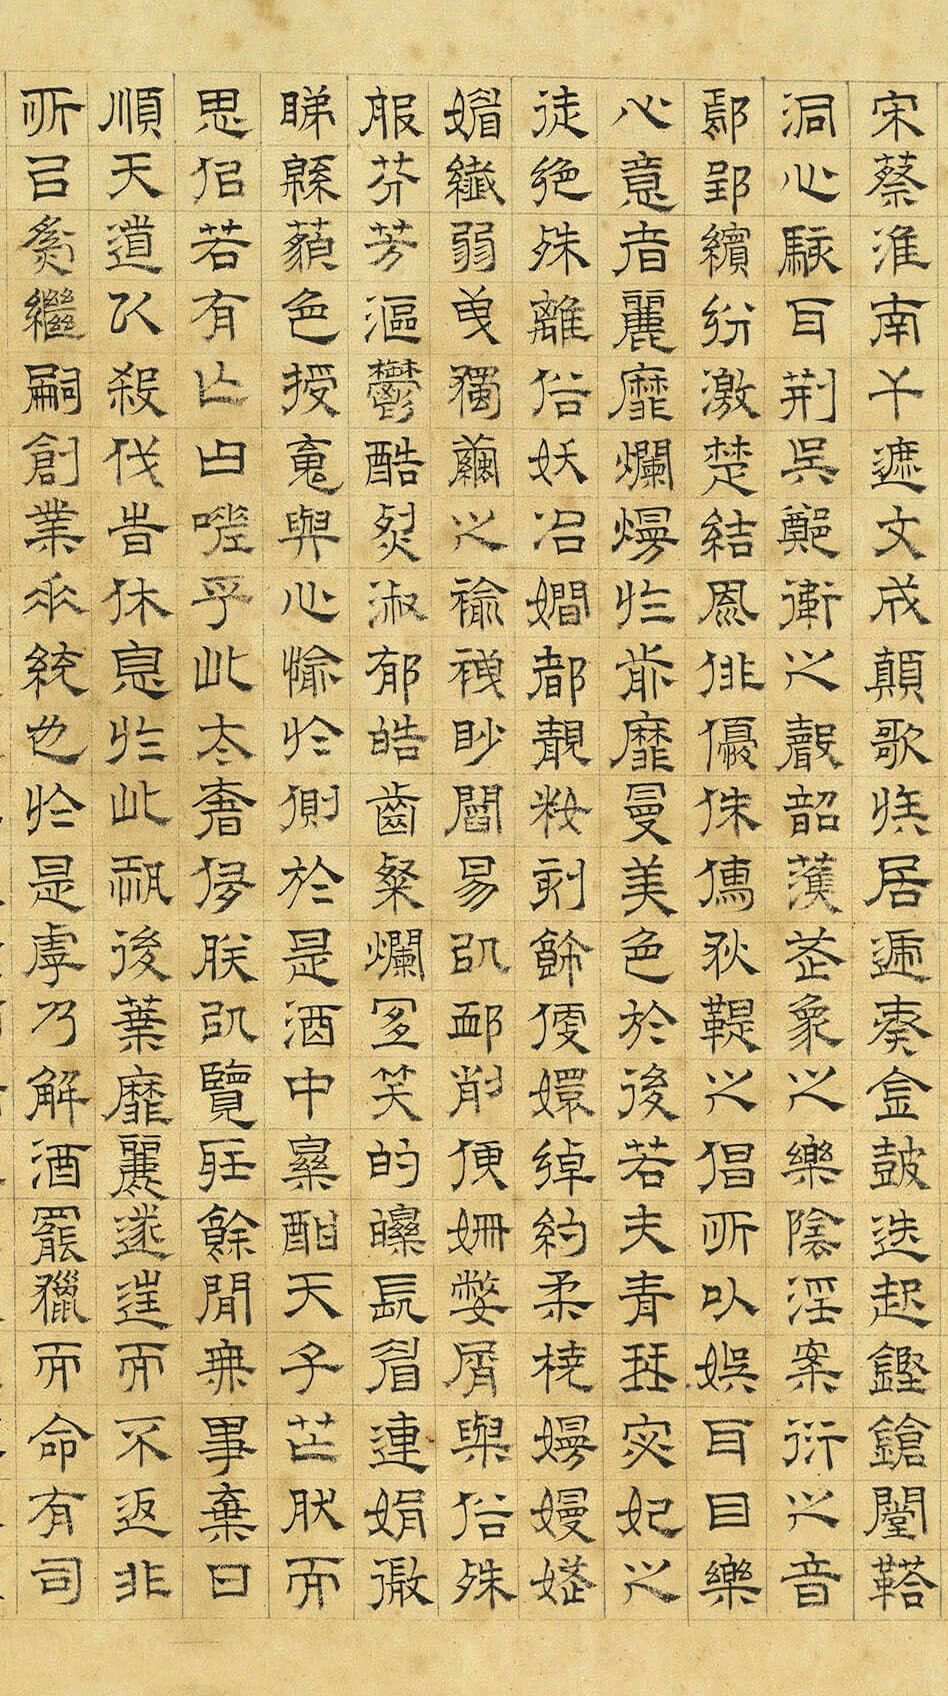 宋蔡淮南干遮文成顛歌族居遞奏金鼓迭起鏗鎗闛鞈
洞心駭耳荊吳鄭衛之聲韶濩武象之樂陰淫案衍之音
鄢郢繽紛激楚結風俳優侏儒狄鞮之倡所以娛耳目樂
心意者麗靡爛熳於前靡曼美色於後若夫青琴宓妃之
徒絕殊離俗妖冶嫺都靚粧刻飾便嬛綽約柔橈嫚嫚嫵
媚纖弱曳獨繭之褕袣眇閻易以卹削便姍嫳屑與俗殊
服芬芳漚鬱酷烈淑郁皓齒粲爛宜笑的皪長眉連娟微
睇緜藐色授䰟與心愉於側於是酒中樂酣天子芒然而
思似若有亡曰嗟乎此太奢侈朕以覽聽餘閒無事棄日
順天道以殺伐時休息於此恐後葉靡麗遂往而不返非
所以為繼嗣創業垂統也於是虖乃解酒罷獵而命有司